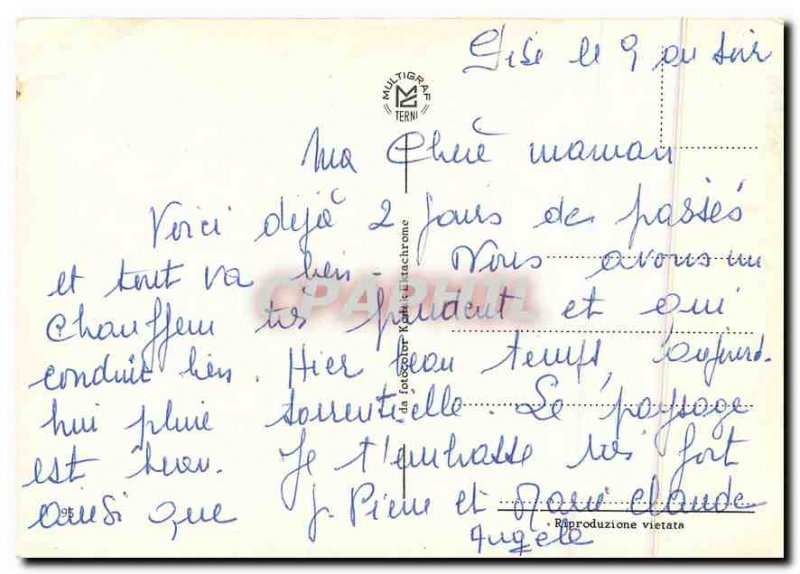 Pise le 9 au soir
MULTIGRAF
TERNI
Ma Chère maman
Voici déjà 2 jours de passés
et tout va bien. Nous avons un
chauffeur très prudent et qui
conduit bien. Hier beau temps, aujourd-
hui pluie torrentielle. Le paysage
est beau. Je t'embrasse très fort
ainsi que J. Pierre et Marie Claude
Angèle
95
da fotocolor Kodak Ektachrome
Riproduzione vietata
CPAPHIL